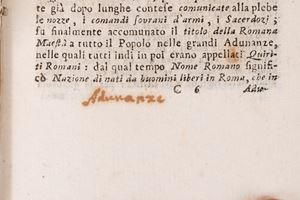 te già dopo lunghe contese comunicate alla plebe
le nozze, i comandi sovrani d'armi, i Sacerdozj;
fu finalmente accomunato il titolo della Romana
Maestà a tutto il Popolo nelle grandi Adunanze,
nelle quali tutti indi in poi erano appellati Quiri-
ti Romani: dal qual tempo Nome Romano signifi-
cò Nazione di nati da huomini liberi in Roma, che in
C 6 Adu-
Adunanze